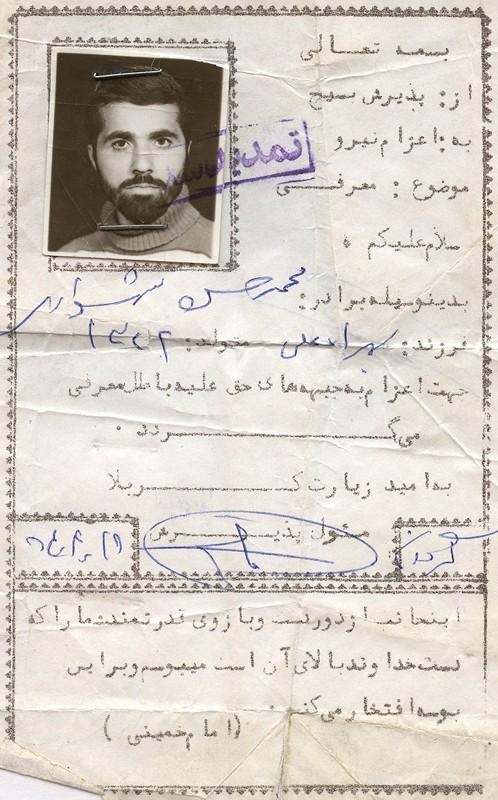 بسمه تعالی
از: پذیرش بسیج
به: اعزام نیرو
موضوع: معرفی
تمدید شد
سلام علیکم
بدینوسیله برادر: محمد حسن
فرزند: متولد: ۱۳۴۲
جهت اعزام به جبهه های حق علیه باطل معرفی
میگردد.
به امید زیارت کربلا
مسئول پذیرش
اینجانب از دور دست و بازوی قدرتمند شما را که
دست خداوند بالای آن است میبوسم و بر این
بوسه افتخار می کنم.
(امام خمینی)